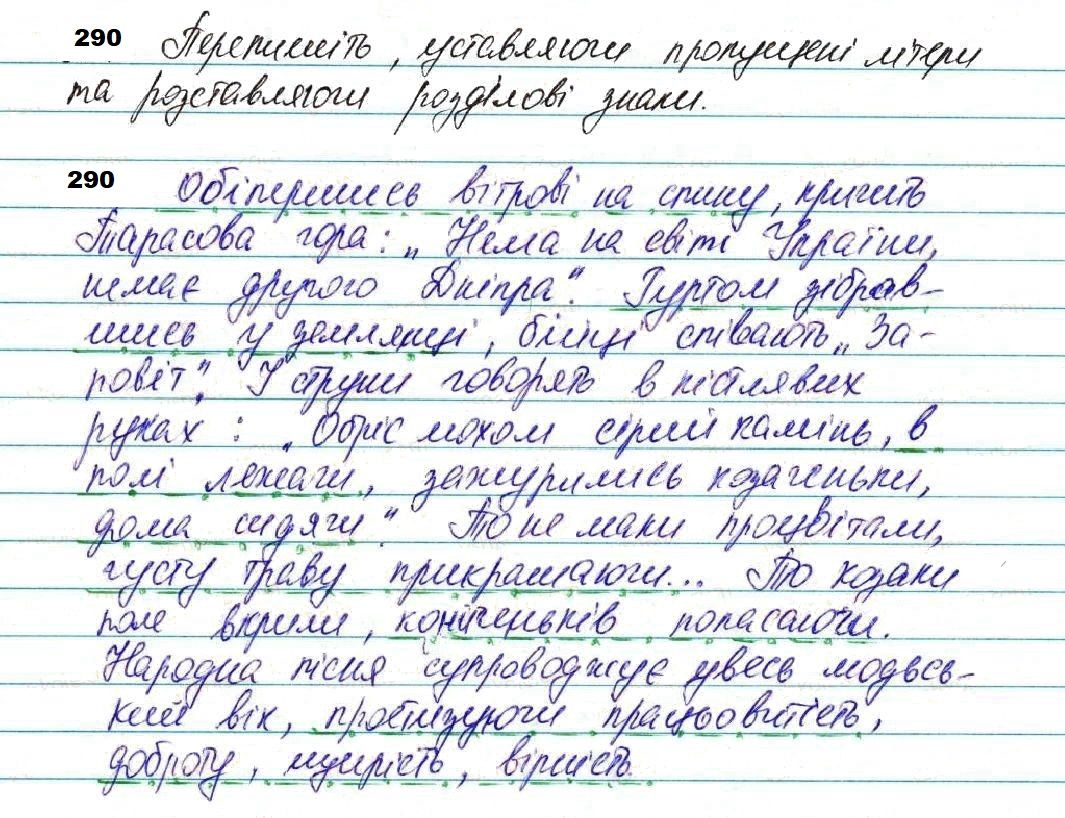 290 Перепишіть, уставляючи пропущені літери
та розставляючи розділові знаки.
290 Обіпершись вітрові на спину, кричить
Тарасова гора: „Нема на світі України,
немає другого Дніпра". Гуртом зібрав-
шись у землянці, бійці співають „За-
повіт". І струни говорять в кістлявих
руках: „Обріс мохом сірий камінь, в
полі лежачи, зажурились козаченьки,
дома сидячи". То не маки процвітали,
густу траву прикрашаючи... То козаки
поле вкрили, кониченьків попасаючи.
Народна пісня супроводжує увесь людсь-
кий вік, простизуючи працьовитість,
доброту, мудрість, вірність.